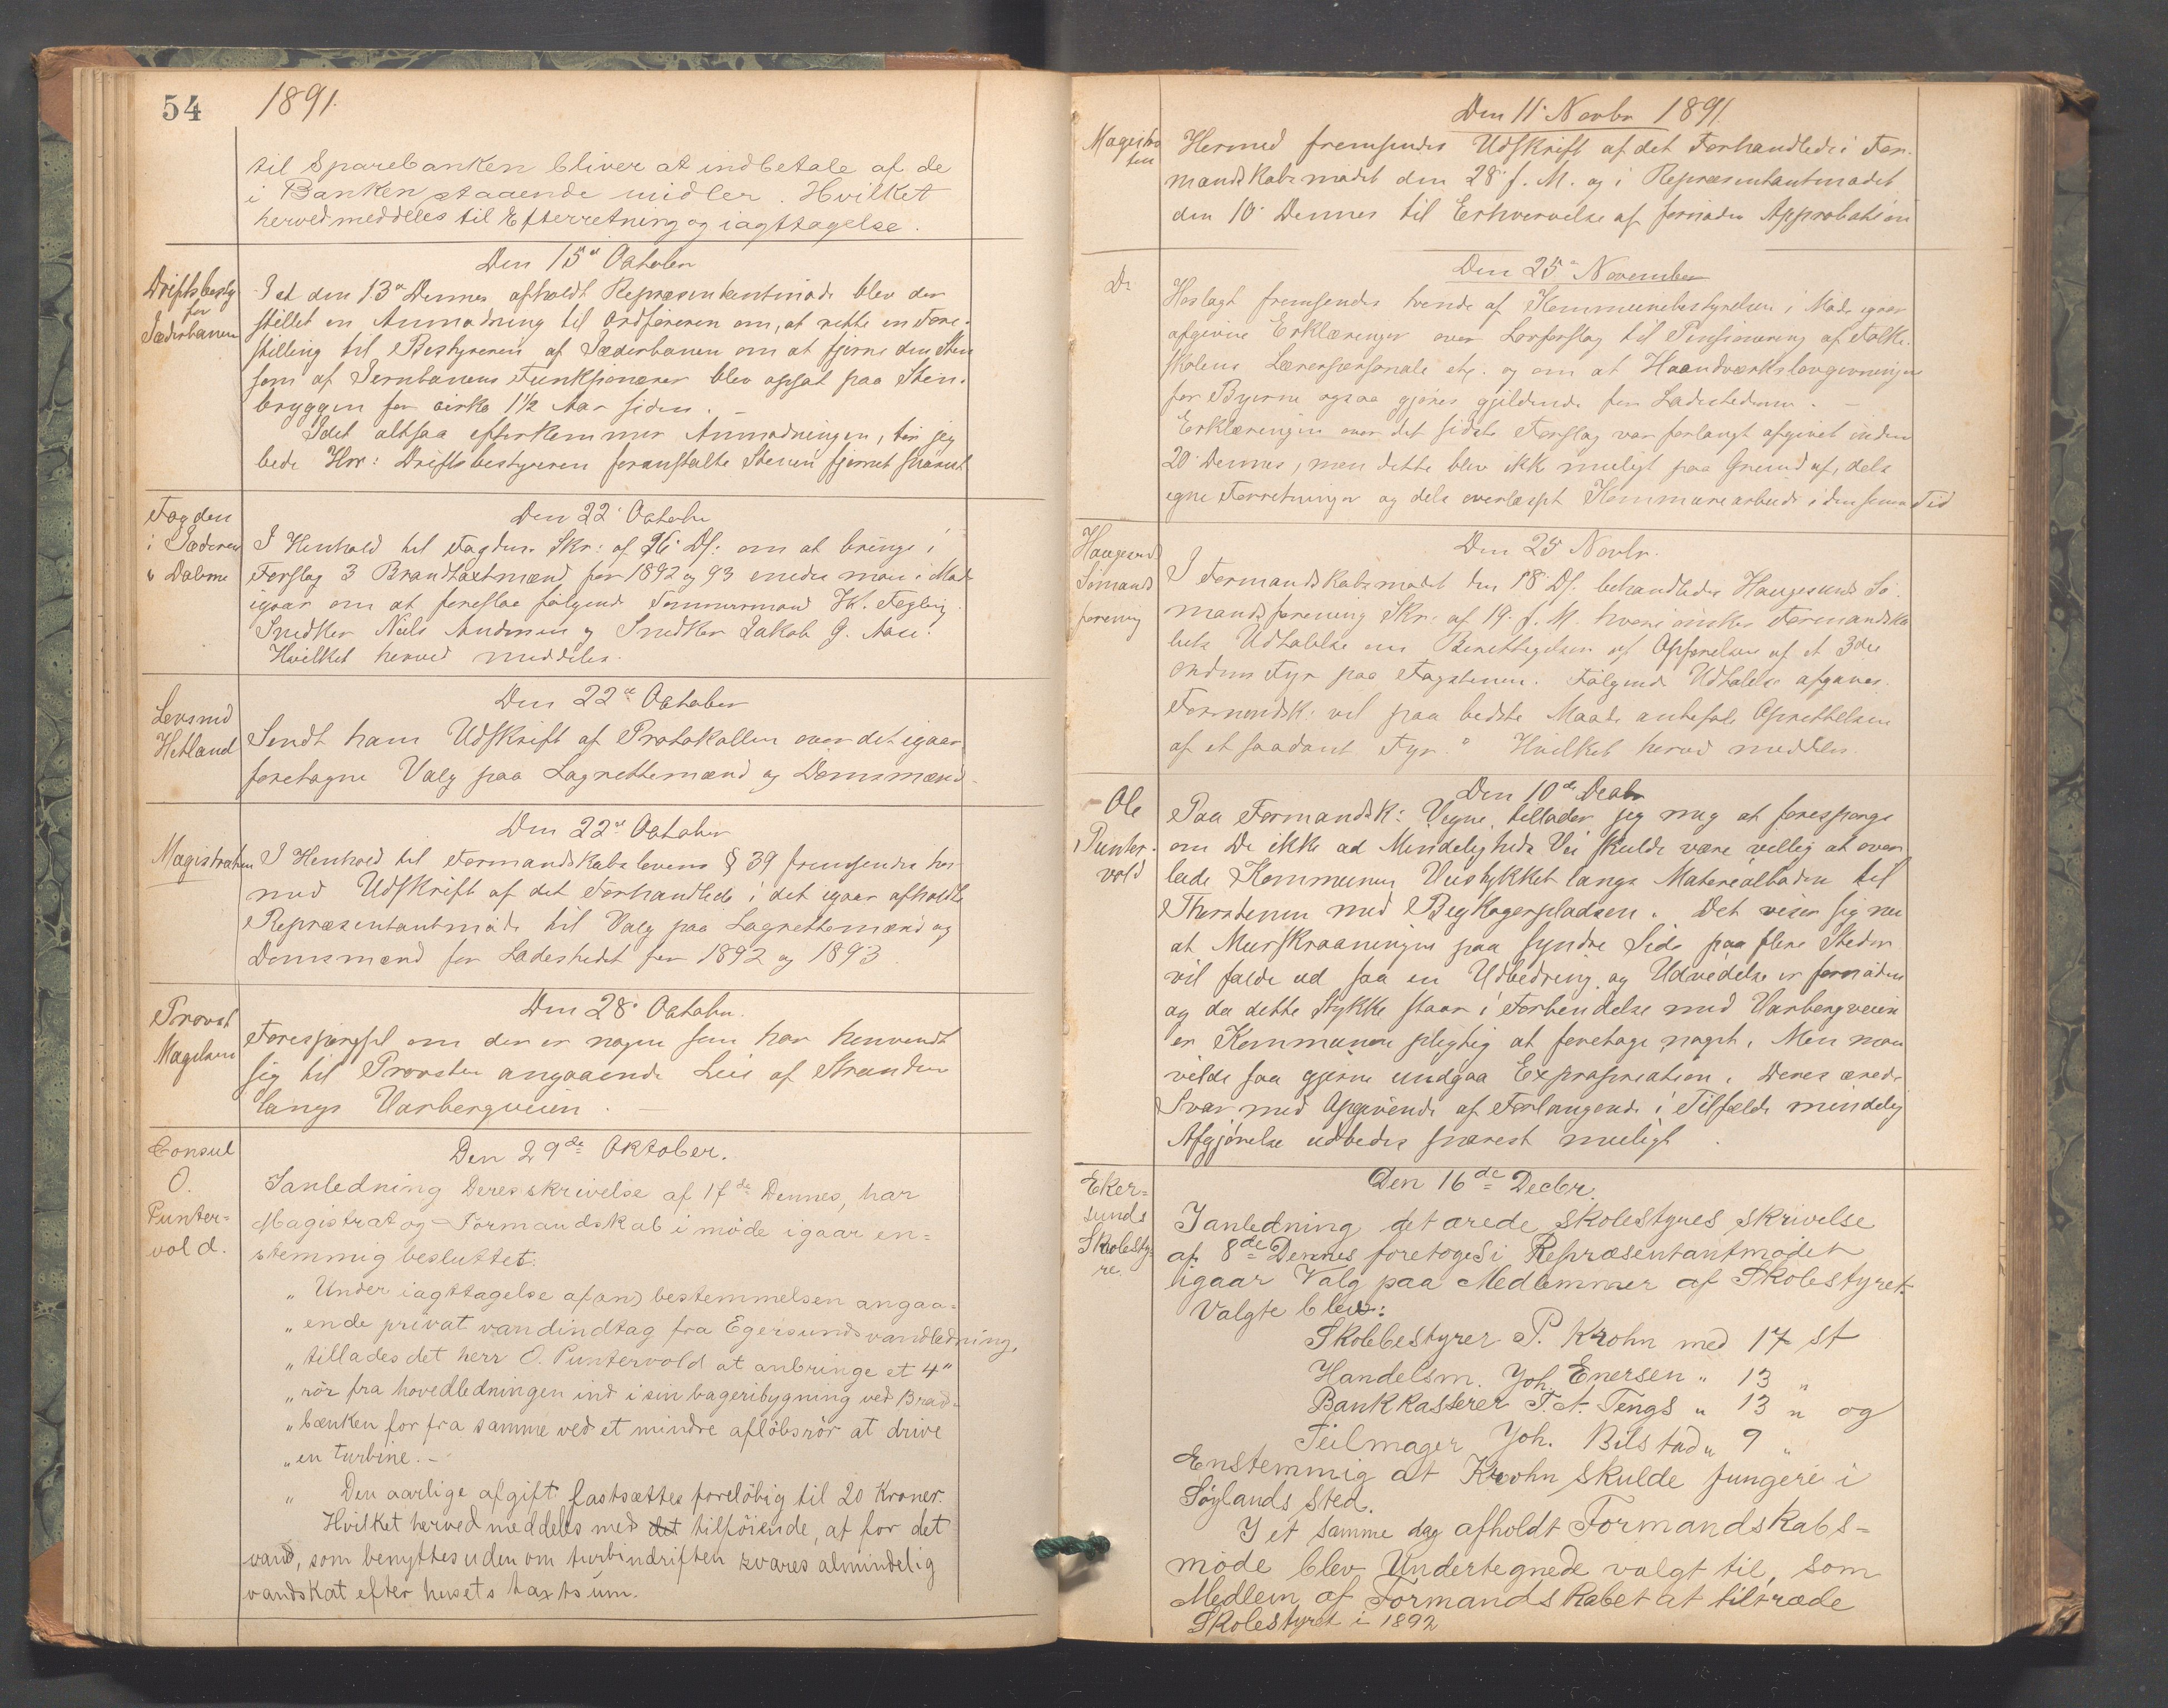 54
1891.
til Sparebanken bliver at indbetale af de
i Banken staaende midler. Hvilket
herved meddeles til Efterretning og iagttagelse.
Den 15de October
Driftsbesty.
for
Jæderbanen
I et den 13de Dennes afholdt Repræsentantmøde blev der
stillet en Anmodning til Ordføreren om, at rette en Fore-
stilling til Bestyreren af Jæderbanen om at fjerne den Sten
som af Jernbanens Funksjonærer blev opsat paa Sten-
bryggen for cirka 1½ Aar siden. –
Idet altsaa efterkommer Anmodningen, tør jeg
bede Hrr: Driftsbestyreren foranstalte Stenen fjernet snarest
Fogden
i Jæderen
& Dalerne
Den 22. October
I Henhold til Fogdens Skr: af 16. Ds: om at bringe i
Forslag 3 Brandtaxtmænd for 1892 og 93 enedes man i Møde
igaar om at foreslaa følgende Tømmermand H. Fegling
Snedker Niels Andersen og Snedker Jakob G. Aase.
Hvilket herved meddeles.
Lensmd
Hetland
Den 22de October
Sendt ham Udskrift af Protokollen over det igaar
foretagne Valg paa Lagrettemænd og Domsmænd.
Magistraten
Den 22de October
I Henhold til Formandskabslovens § 39 fremsendes her-
med Udskrift af det Forhandlede i det igaar afholdte
Repræsentantmøde til Valg paa Lagrettemænd og
Domsmænd for Ladestedet for 1892 og 1893.
Provst
Magelsen
Den 28. October.
Forespørgsel om der er nogen som har henvendt
sig til Provsten angaaende Leie af Stranden
langs Varbergveien. –
Consul
O.
Punter=
vold.
Den 29de Oktober.
Ianledning Deres skrivelse af 17de Dennes, har
Magistrat og Formandskab i møde igaar en=
stemmig besluttet:
„ Under iagttagelse af (an) bestemmelsen angaa=
„ ende privat vandindtag fra Egersunds vandledning,
„ tillades det herr O. Puntervold at anbringe et 4"
„ rør fra hovedledningen ind i sin bageribygning ved Brad-
„ bænken for fra samme ved et mindre afløbsrør at drive
„ en turbine. –
„ Den aarlige afgift fastsættes foreløbig til 20 Kroner.
Hvilket herved meddeles med det tilføiende, at for det
vand, som benyttes uden om turbindriften svares almindelig
vandskat efter husets taxtsum.
Den 11. Novbr 1891.
Magistra
ten
Hermed fremsendes Udskrift af det Forhandlede i For-
mandskabsmødet den 28. f. M. og i Repræsentantmødet
den 10. Dennes til Erhvervelse af fornøden Approbation
Do
Den 25de November
Hoslagt fremsendes tvende af Kommunebestyrelsen i Møde igaar
afgivne Erklæringer over Lovforslag til Pensionering af Folke-
skolens Lærerpersonale etc. og om at Haandværkslovgivningen
for Byerne ogsaa gjøres gjeldende for Ladestederne. –
Erklæringen over det sidste Forslag var forlangt afgivet inden
20. Dennes, men dette blev ikke muligt paa Grund af, dels
egne Forretninger og dels overlæsset Kommunearbeide i den senere Tid
Haugesunds
Sømands
forening
Den 25 Novbr.
I Formandskabsmødet den 18. Ds. behandledes Haugesunds Sø-
mandsforening Skr: af 19. f. M. hvori ønskes Formandska
bets Udtalelse om Berettigelsen af Opførelsen af et 3die
Ordens Fyr paa Fagstenen. Følgende Udtalelse afgaves.
Formandsk: vil paa bedste Maade anbefale Oprettelsen
af et saadant Fyr." Hvilket herved meddeles.
Ole
Punter-
vold
Den 10de Decbr
Paa Formandsk: Vegne, tillader jeg mig at forespørge
om De ikke ad Mindeligheds Vei skulde være villig at over
lade Kommunen Veistykket langs Materialboden til
Thorstenen med Begkogerpladsen. Det viser sig nu
at Murskraaningen paa syndre Side paa flere Steder
vil falde ud saa en Udbedring og Udvidelse er fornøden
og da dette Stykke staar i Forbindelse med Varbergveien
er Kommunen pligtig at foretage noget. Men man
vilde saa gjerne undgaa Expropriation. Deres ærede
Svar med Opgivende af Forlangende i Tilfælde mindelig
Afgjørelse udbedes snarest muligt.
Eker=
sunds
Skolesty-
re.
Den 16de Decbr.
Ianledning det ærede skolestyres skrivelse
af 8de Dennes foretoges i Repræsentantmødet
igaar Valg paa Medlemmer af Skolestyret.
Valgte blev:
Skolebestyrer P. Krohn med 17 st
Handelsm. Joh. Enersen „ 13 „
Bankkasserer F. A. Tengs „ 13 „ og
Seilmager Joh. Bilstad „ 9 „
Enstemmig at Krohn skulde fungere i
Søylands sted.
I et samme dag afholdt Formandskabs=
møde blev Undertegnede valgt til, som
Medlem af Formandskabet at tiltræde
Skolestyret i 1892